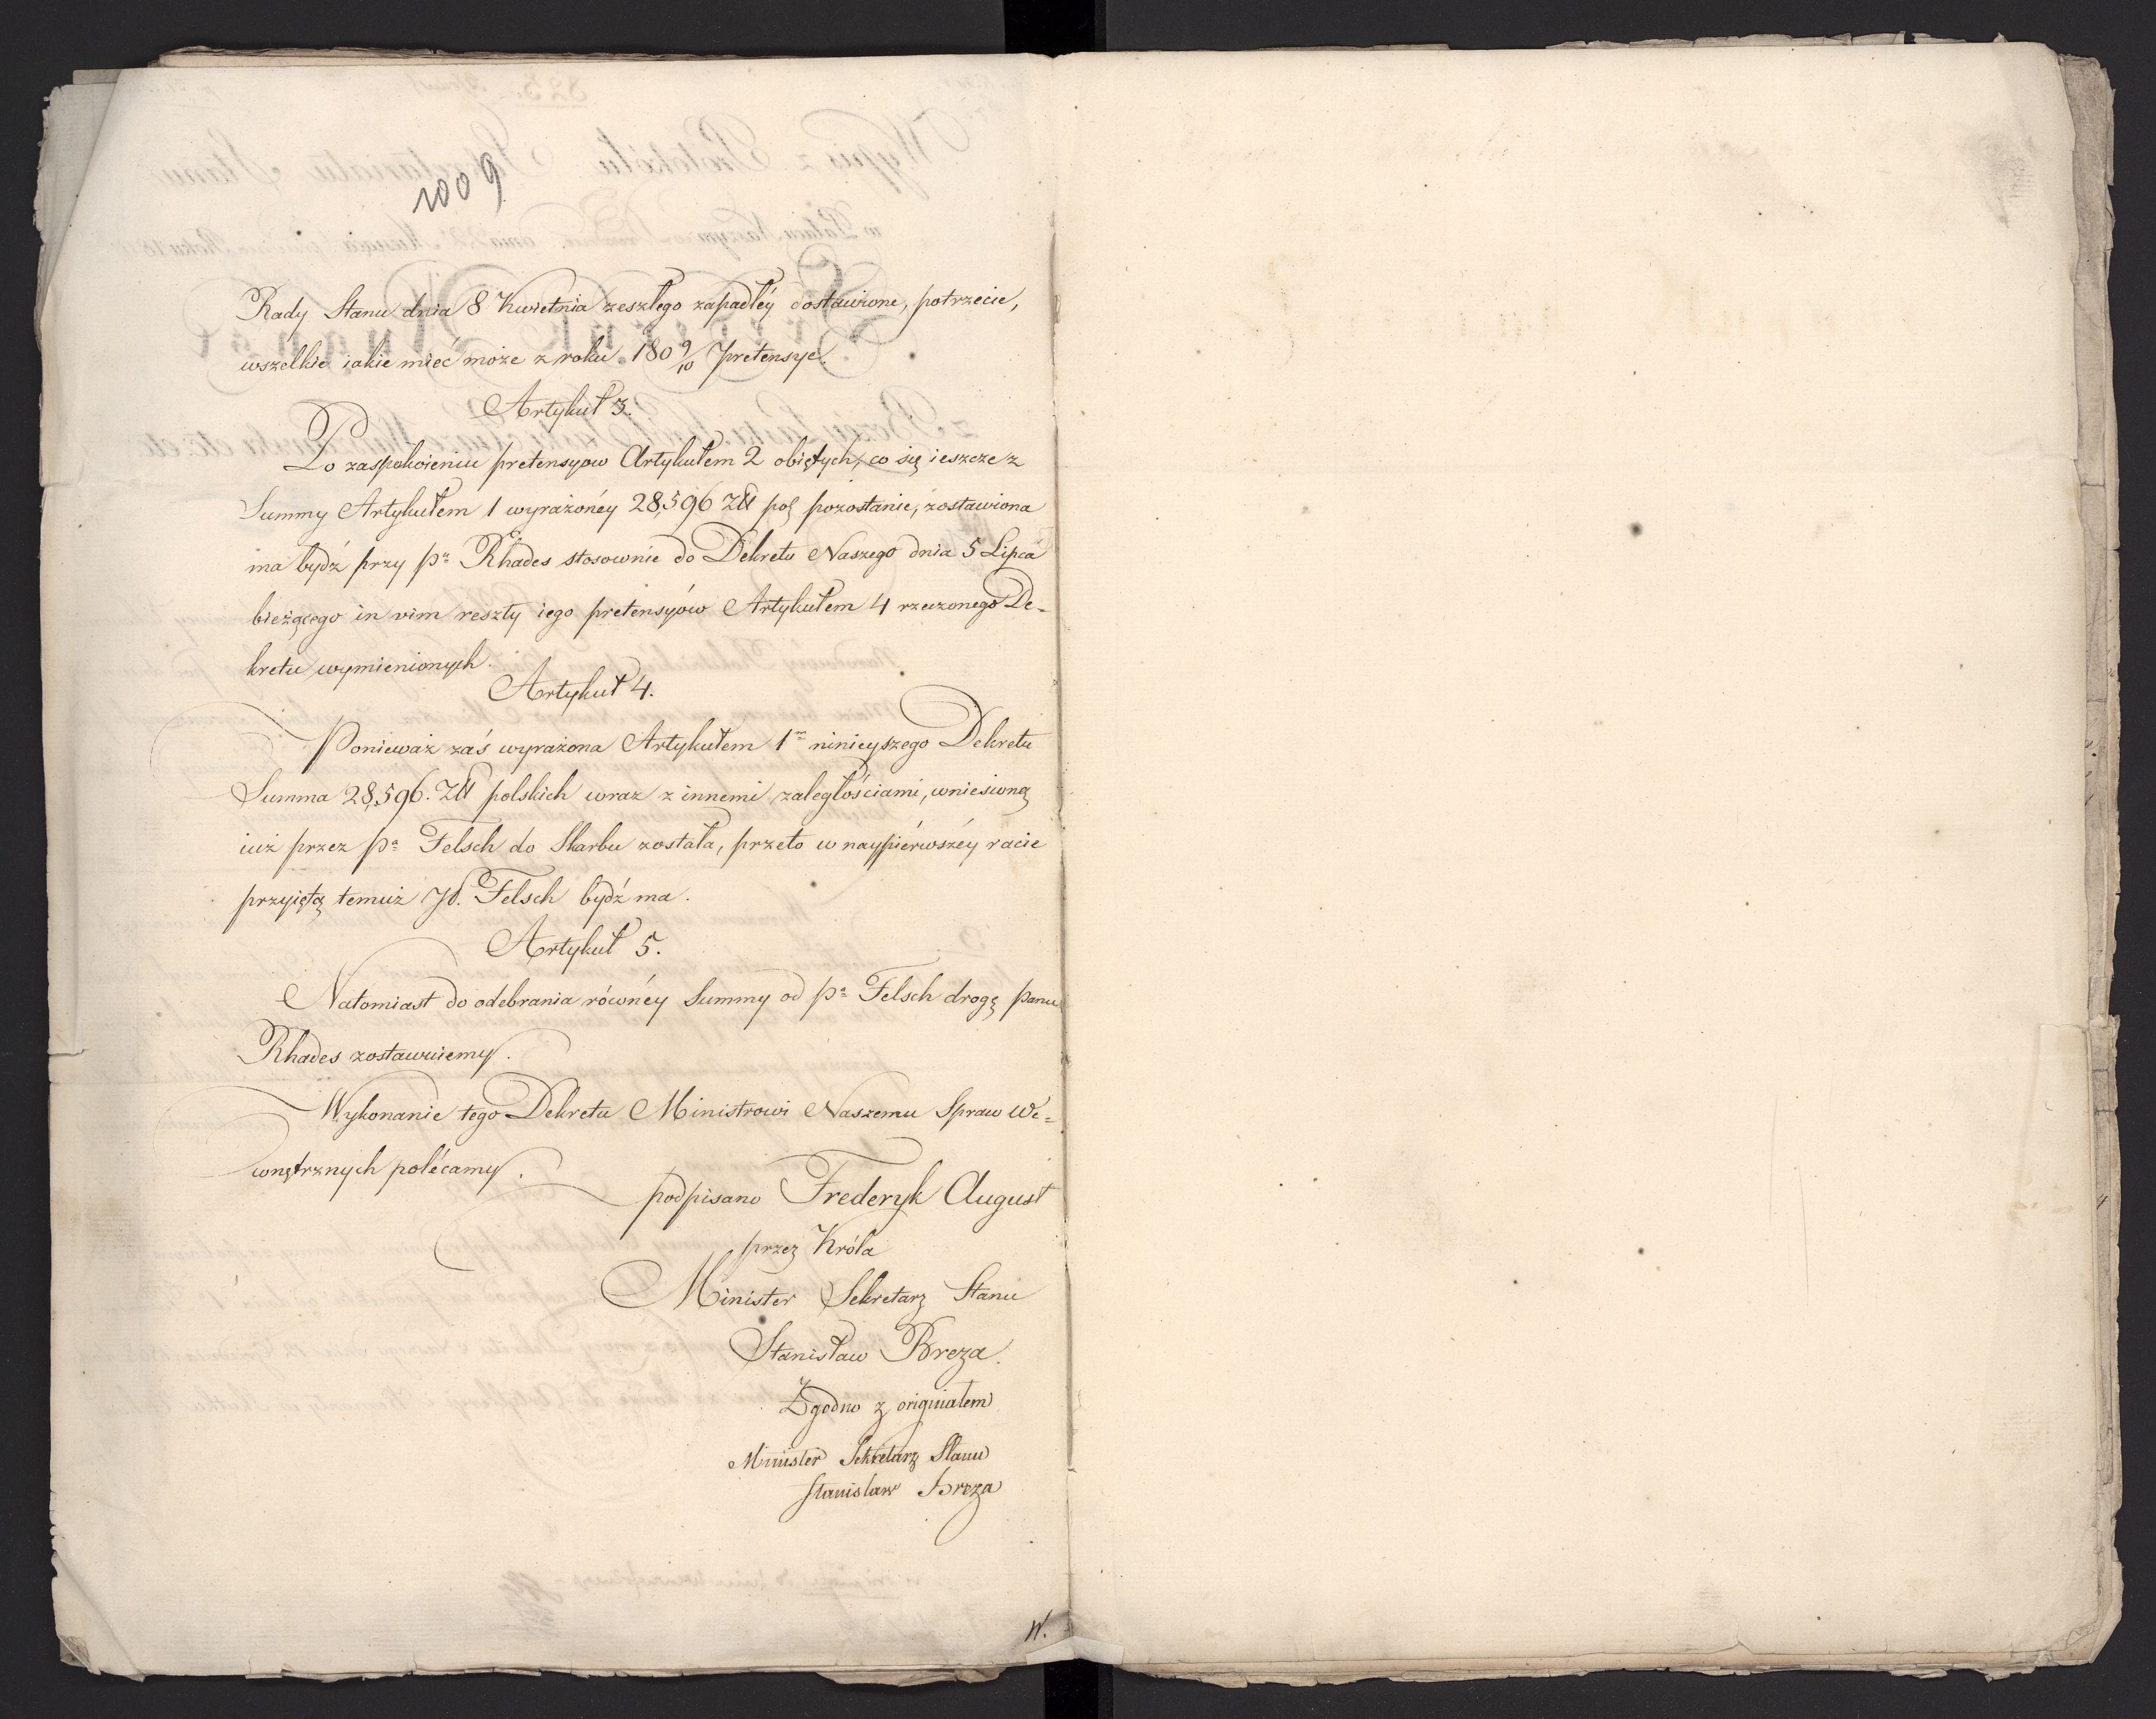 1009
Rady Stanu dnia 8 Kwietnia zeszłego zapadłéy dostawione, potrzecie,
wszelkie iakie mieć może z roku 1809/10 pretensye.
Artykuł 3.
Po zaspokoieniu pretensyow Artykułem 2 obiętych, co się ieszcze z
Summy Artykułem 1 wyrażonéy 28,596 Złł pol pozostanie, zostawiona
ma bydź przy pa Rhades stosownie do Dekretu Naszego dnia 5 Lipca
bieżącego in vim reszty iego pretensyów Artykułem 4 rzeczonego De=
kretu wymienionych.
Artykuł 4.
Ponieważ zaś wyrażona Artykułem 1m ninieyszego Dekretu
Summa 28,596. Złł polskich wraz z innemi zaległościami, wniesioną
iuż przez pa Felsch do Skarbu została, przeto w naypiérwszéy racie
przyiętą temuż JP. Felsch bydź ma.
Artykuł 5.
Natomiast do odebrania równéy Summy od pa Felsch drogę panu
Rhades zostawuiemy.
Wykonanie tego Dekretu Ministrowi Naszemu Spraw We=
wnętrznych polécamy.
podpisano Frederyk August
przez Króla
Minister Sekretarz Stanu
Stanisław Breza.
Zgodno z originałem
Minister Sekretarz Stanu
Stanisław Breza
W.